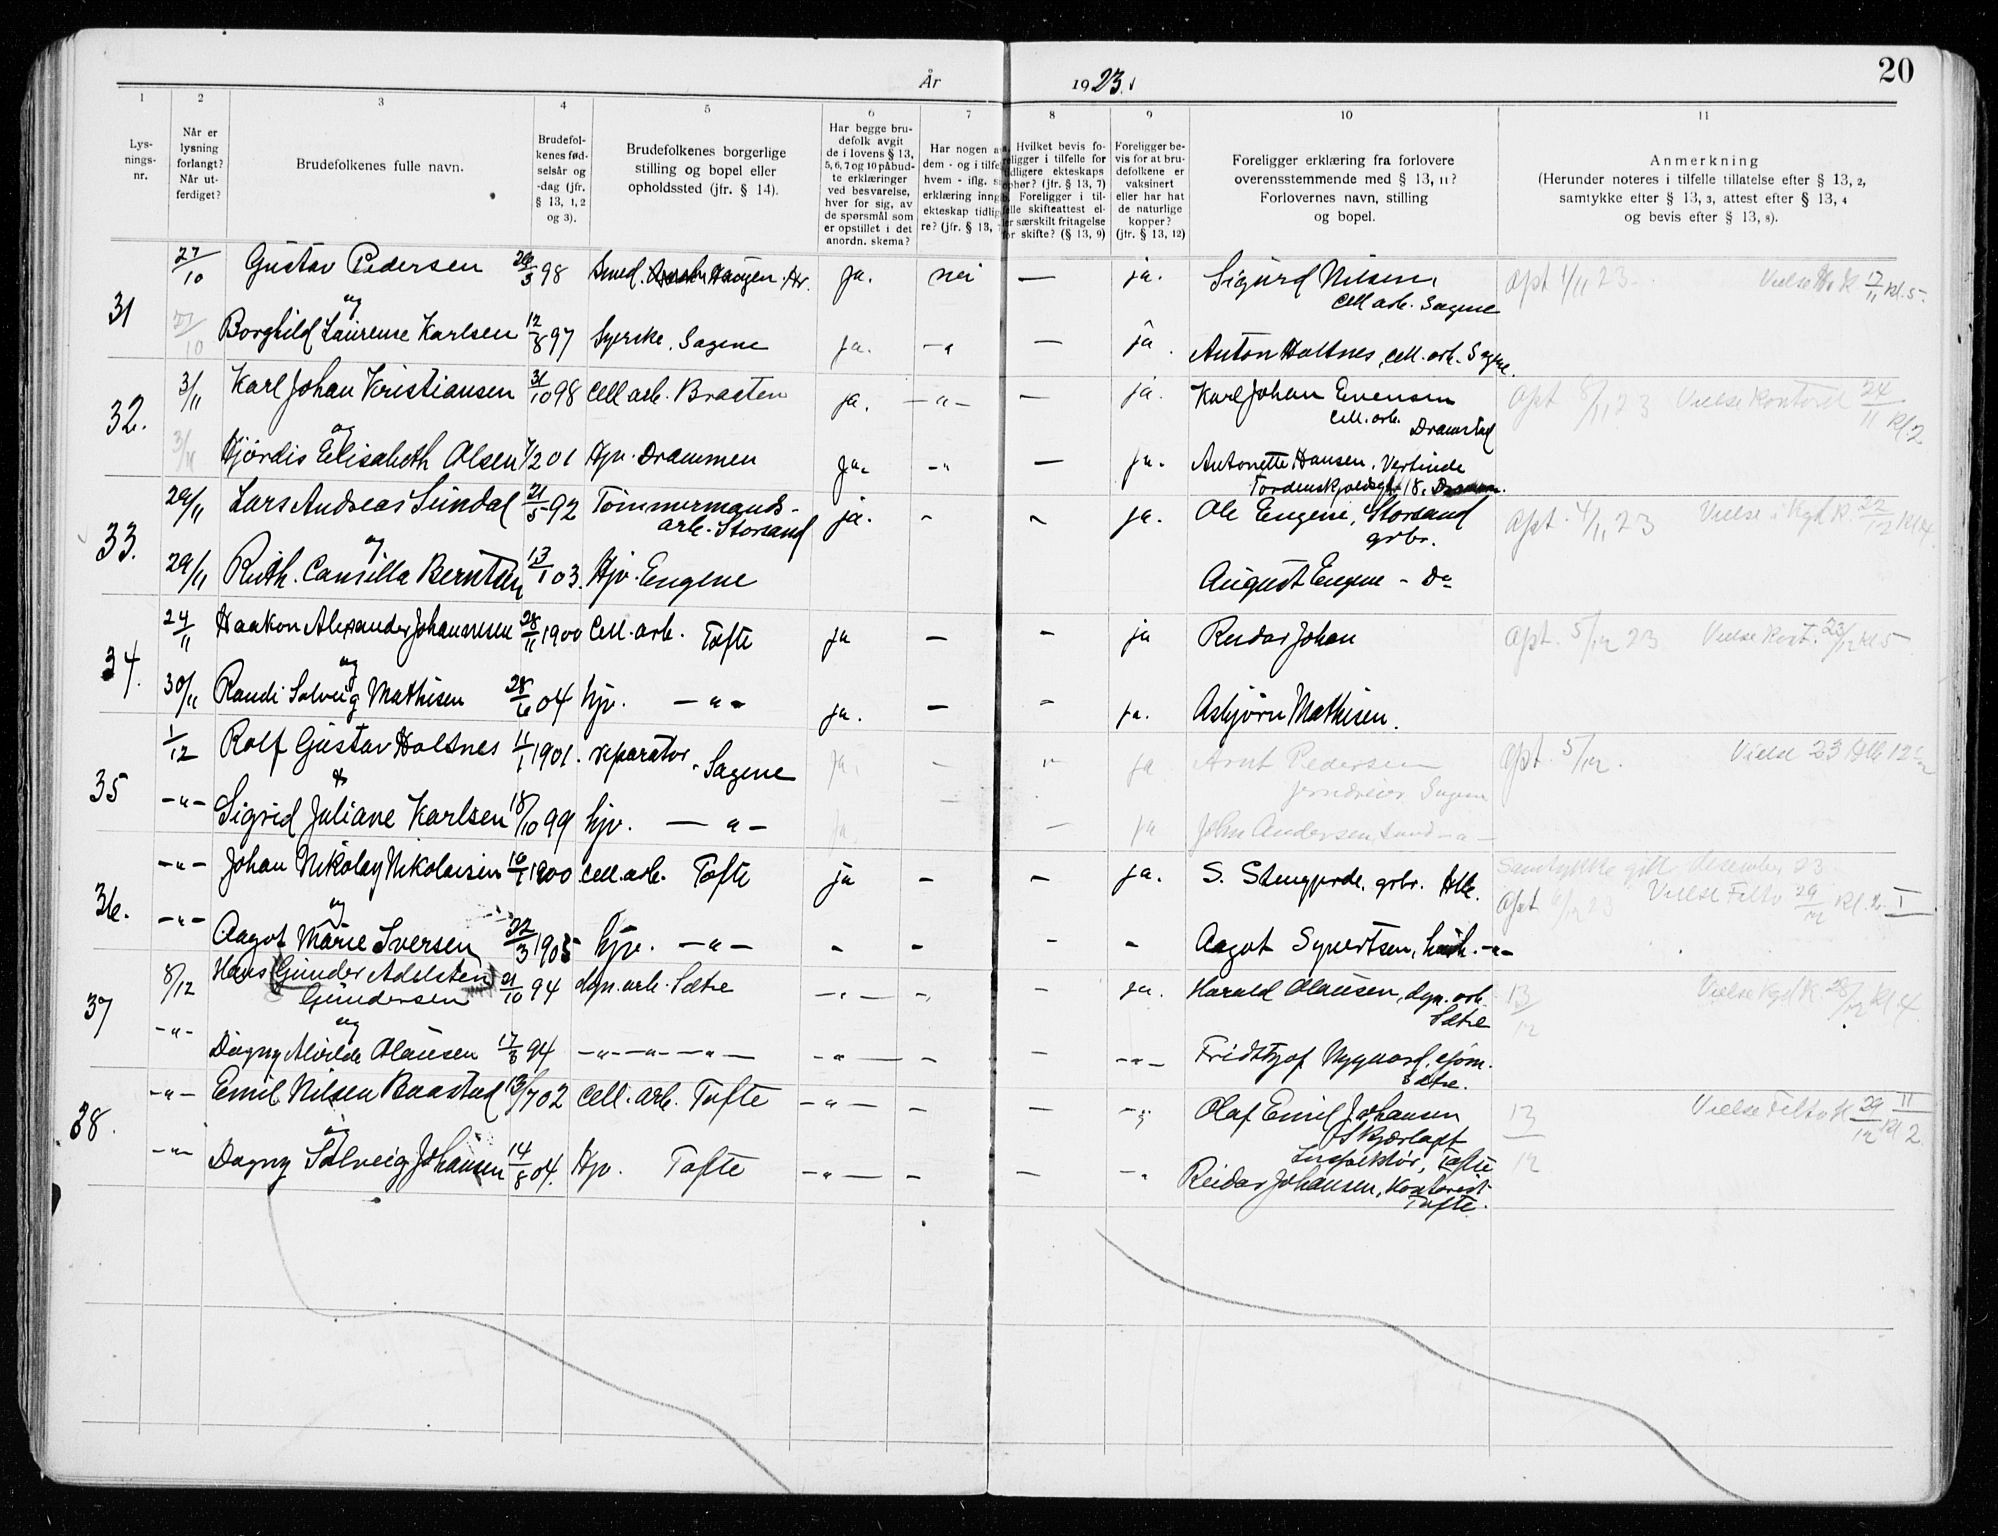 20
År 1923.
1 2 3 4 5 6 7 8 9 10 11
Lys-
nings-
nr.
Når er
lysning
forlangt?
Når ut-
ferdiget?
Brudefolkenes fulle navn.
Brudefol-
kenes fød-
selsår og
-dag (jfr.
§ 13, 1, 2
og 3).
Brudefolkenes borgerlige
stilling og bopel eller
opholdssted (jfr. § 14).
Har begge bru-
defolk avgit
de i lovens § 13,
5, 6, 7 og 10 påbud-
te erklæringer
ved besvarelse,
hver for sig, av
de spørsmål som
er opstillet i det
anordn. skema?
Har nogen a
dem - og i tilfe
hvem - iflg.
erklæring inng
ekteskap tidlig
re? (jfr. § 13,
Hvilket bevis fo-
religger i tilfelle for
tidligere ekteskaps
ophør? (jfr. § 13, 7)
Foreligger i til-
felle skifteattest el-
ler særskilt fritagelse
for skifte? (§ 13, 9)
Foreligger be-
vis for at bru-
defolkene er
vaksinert
eller har hat
de naturlige
kopper?
(jfr. § 13, 12)
Foreligger erklæring fra forlovere
overensstemmende med § 13, 11?
Forlovernes navn, stilling
og bopel.
Anmerkning
(Herunder noteres i tilfelle tillatelse efter § 13, 2,
samtykke efter § 13, 3, attest efter § 13, 4
og bevis efter § 13, 8).
31 27/10 Gustav Pedersen 26/3 98 Smed. Haugen Hr. Ja. nei — ja. Sigurd Nilsen, opt 1/11 23 Vielse Hr. K 17/11 kl. 5.
cell arb. Sagene
og
27/10 Borghild Laurense Karlsen 12/8 97 Syerske, Sagene ja. -"- — ja Anton Holtnes, cell. arb. Sagene.
32. 3/11 Karl Johan Kristiansen 31/10 98 Cell arb. Brasten ja. —"— — ja. Karl Johan Evensen opt 8/11 23 Vielse kontoret 24/11 kl. 2
cell. arb. Dramstad
og
3/11 Hjørdis Elisabeth Olsen 1/2 01 Hjv. Drammen Ja. -"- — ja. Antonette Hansen, Vertinde
Tordenskjoldsgt 18, Drammen.
33. 29/11 Lars Andreas Sundal 21/5 92 Tømmermands- ja. - - ja. Ole Engene, Storsand opt. 4/11 23 Vielse i Kgd K. 22/12 kl 4.
arb. Storsand
grbr.
og
29/11 Ruth Camilla Berntsen 13/1 03. Hjv. Engene August Engene - Do
34. 24/11 Haakon Alexander Johannesen 28/11 1900 Cell. arb. Tofte ja — — ja Reidar Johan opt. 5/12 23 Vielse Kont. 23/12 kl 5
og
30/11 Randi Solveig Mathisen 28/6 04 hjv. — " — ja. — — ja. Asbjørn Mathisen.
35 1/12 Rolf Gustav Holtnes 11/1 1901. reparatør. Sagene Ja, — — ja Arnt Pedersen opt. 5/12. Vielse 23 Hb 12
jerndreier Sagene
&
-"- Sigrid Juliane Karlsen 18/10 99 hjv. — " — ja — ja John Andersen, Sand -"-
36. -"- Johan Nikolay Nikolaisen 16/1 1900 cell. arb. Tofte ja - — ja. S. Stengjorde, grbr. Hb. Samtykke gitt desember 23
opt 6/12 23 Vielse Filtv 29/12 kl. 2. I
og
-"- Aagot Marie Iversen 22/3 1905 hjv. — " — - - - - Aagot Syvertsen, -"-
37 8/12 Hans (Gunder Adelsten) 21/10 94 dyn. arb. Sætre —"— -"- - ja. Harald Olausen, dyn. arb. 13/12 Vielse Kgd K. 28/12 kl 4
Gundersen
Sætre
og
-"- Dagny Alvilde Olausen 17/3 94 —"—"—"— -"- - — -"- Fridthjof Nygaard, sjøm.
Sætre.
38. -"- Emil Nilsen Baastad 13/7 02 cell. arb. Tofte -"- — — -"- Olaf Emil Johansen 13/12 Vielse Filtv K 29/12 kl 2 II
Skjærlagt
Inspektør, Tofte
og
-"- Dagny Solveig Johansen 14/8 04. Hjv. Tofte -"- — — -"- Reidar Johansen, kontorist
Tofte.